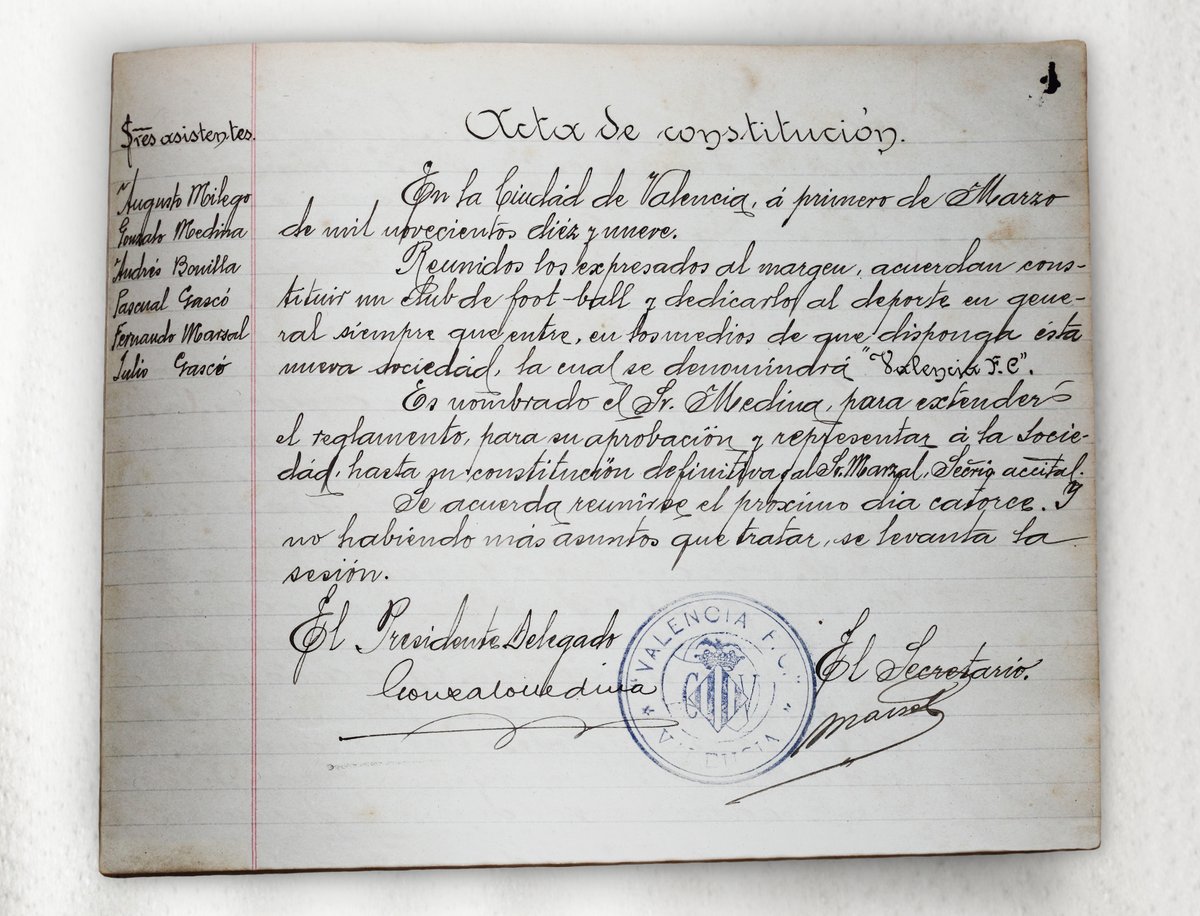 1
Sres asistentes.
Augusto Milego
Gonzalo Medina
Andrés Bonilla
Pascual Gascó
Fernando Marsal
Julio Gascó
Acta de constitución.
En la Ciudád de Valencia, á primero de Marzo
de mil novecientos diéz y nueve.
Reunidos los expresados al margen, acuerdan cons-
tituir un club de foot-ball y dedicarlo, al deporte en gene-
ral siempre que entre, en los medios de que disponga ésta
nueva sociedád, la cual se denomindrá "Valencia F.C".
Es nombrado el Sr. Medina, para extender
el reglamento, para su aprobación y representar á la Socie-
dád, hasta su constitución definitiva, al Sr. Marzal, Secrio accital.
Se acuerda reunirse el próximo dia catorce. Y
no habiendo más asuntos que tratar, se levanta la
sesión.
El Presidente Delegado
Gonzalo Medina
"VALENCIA F.C."
VALENCIA
El Secretario.
Marsal